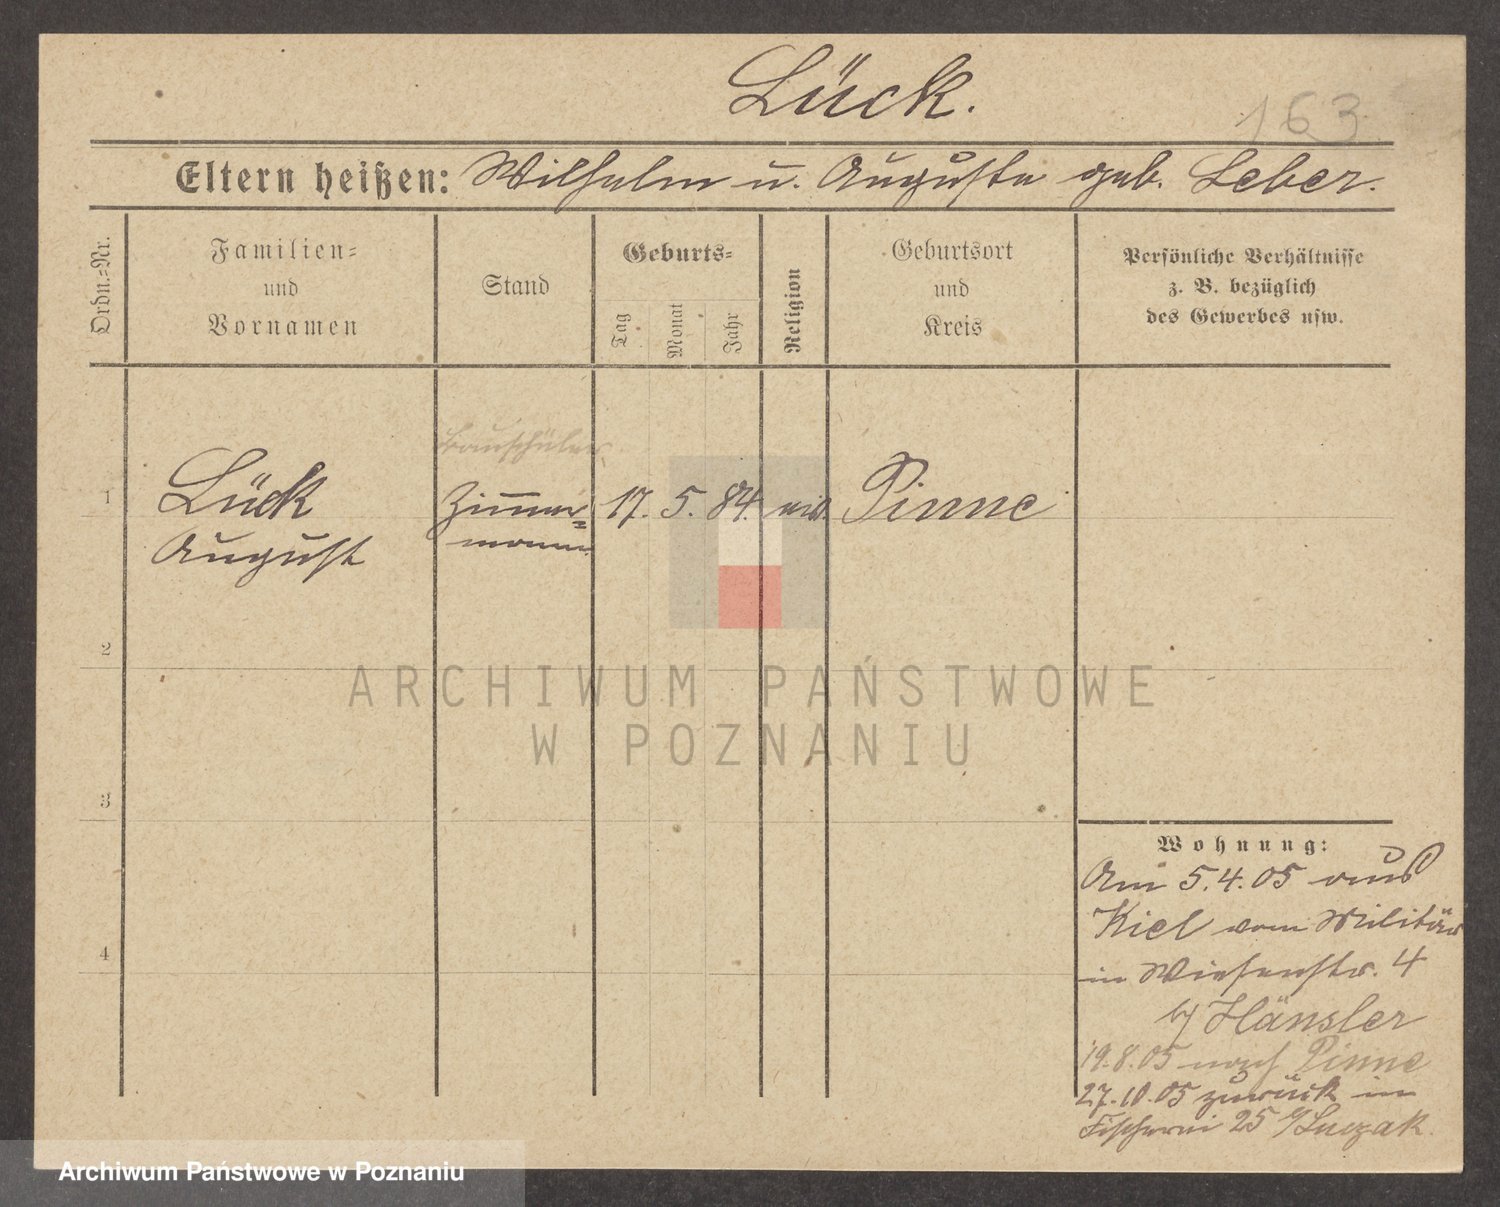 Lück.
163
Eltern heißen: Wilhelm u. Auguste geb. Leber.
Ordn.-Nr.
Familien-
und
Vornamen
Stand
Geburts-
Tag
Monat
Jahr
Religion
Geburtsort
und
Kreis
Persönliche Verhältnisse
z. B. bezüglich
des Gewerbes usw.
Bauschüler
1 Lück Zimmer= 17. 5. 84. Pinne
August mann
2
ARCHIWUM PAŃSTWOWE
W POZNANIU
3
Wohnung:
Am 5.4.05 aus
Kiel vom Militär
4
in Wiesenstr. 4
b/ Hänsler
19.8.05 nach Pinne
27.10.05 zurück in
Fischerei 25 Luczak.
Archiwum Państwowe w Poznaniu